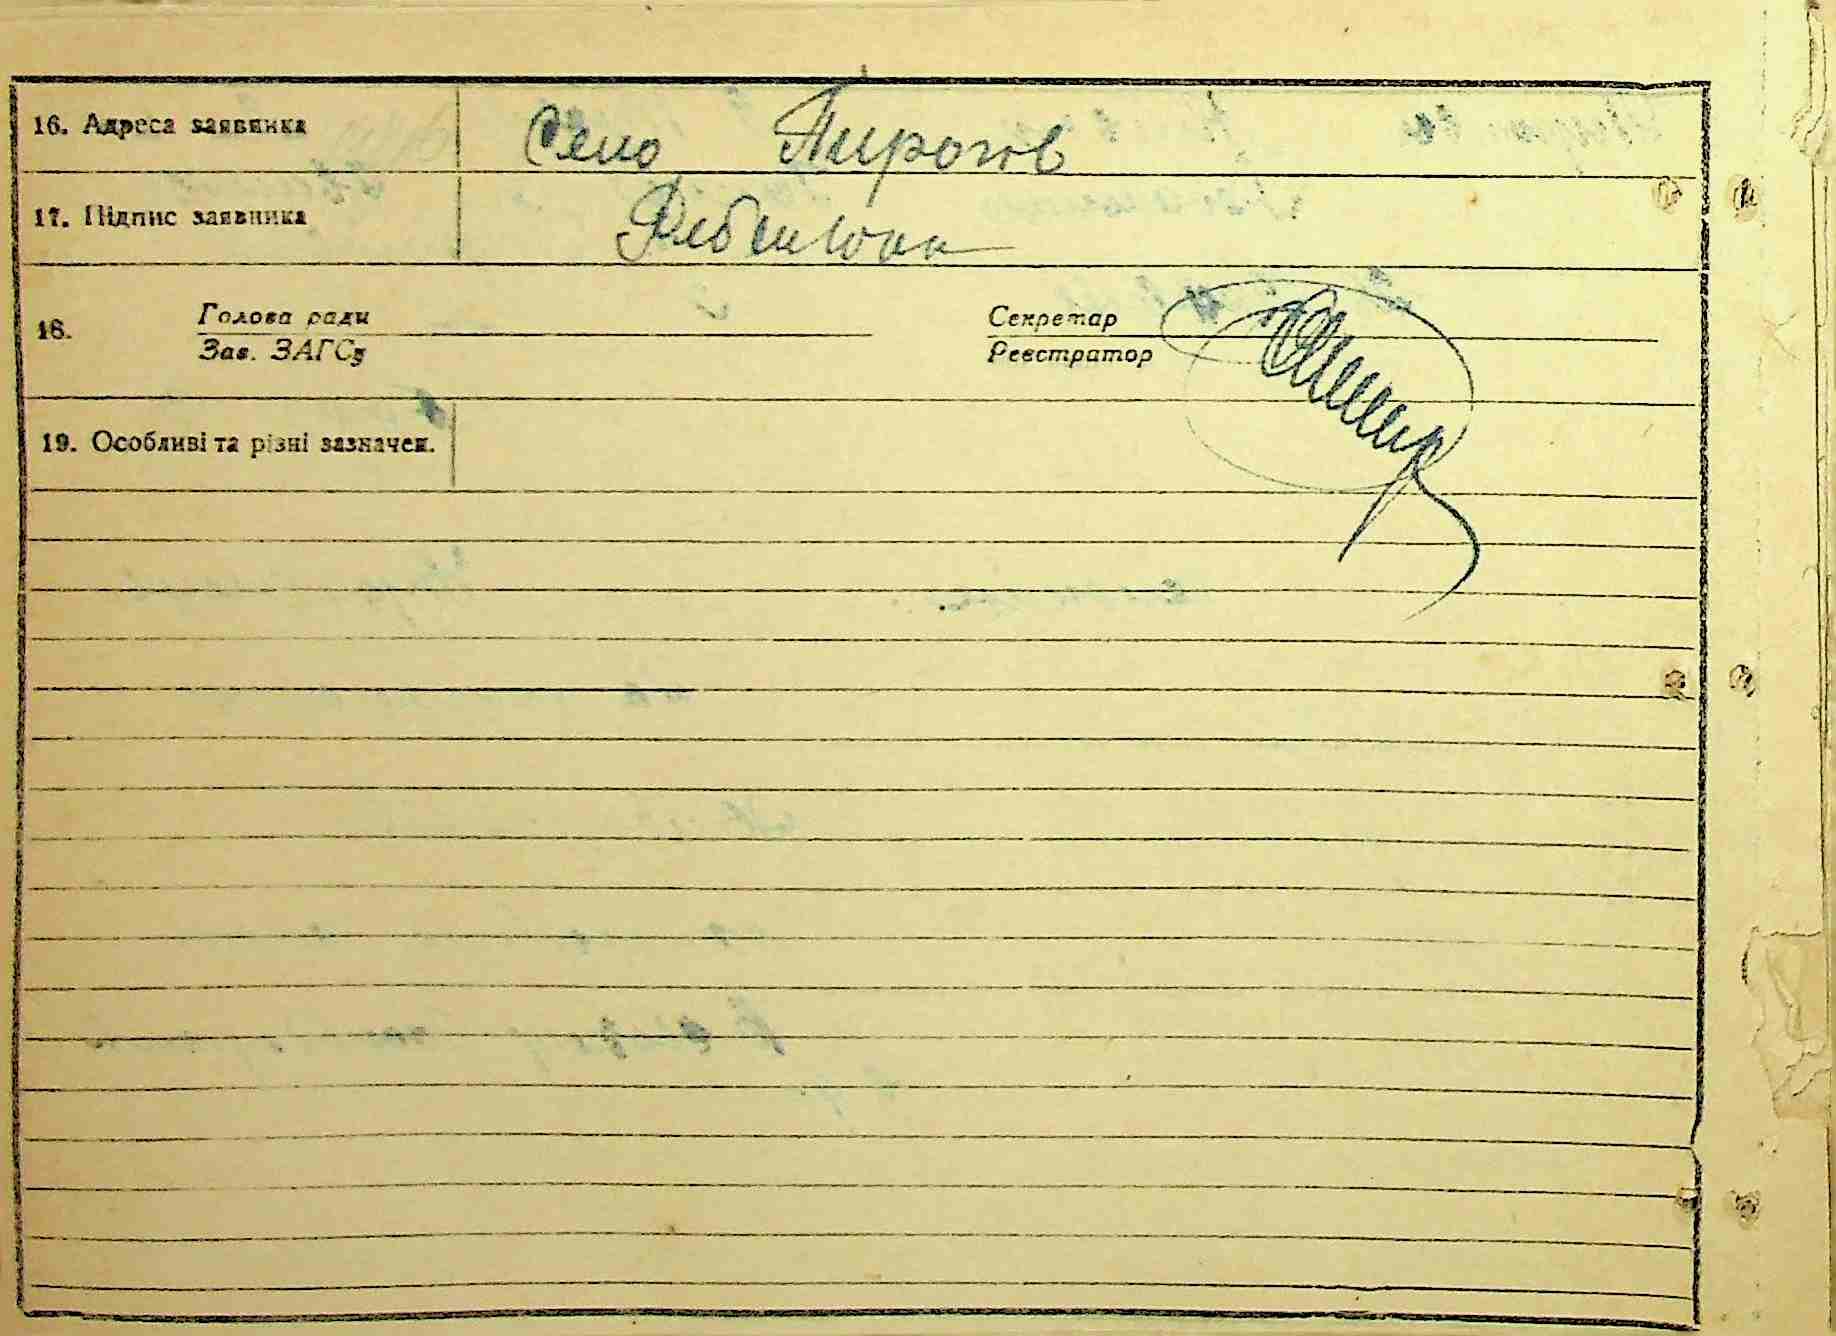 16. Адреса заявника Село Пирогов
17. Підпис заявника
18. Голова ради Секретар
Зав. ЗАГСу Реєстратор
19. Особливі та різні зазначен.